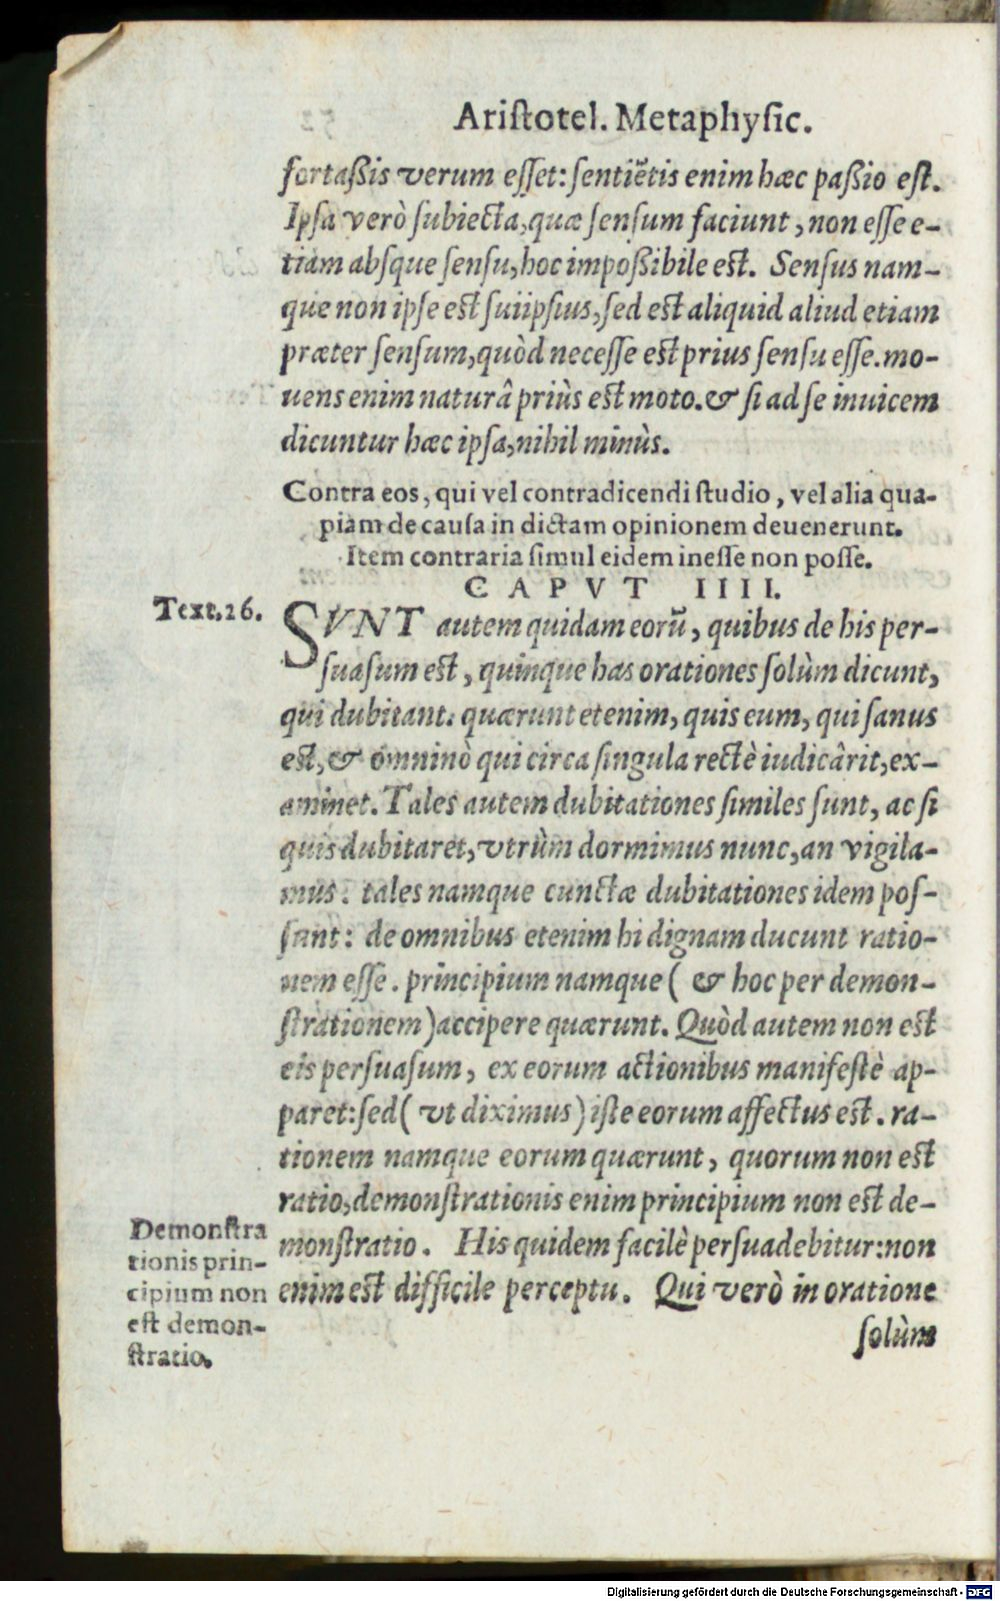 Aristotel. Metaphysic.
fortaßis verum esset: sentiẽtis enim hæc paßio est.
Ipsa verò subiecta, quæ sensum faciunt, non esse e-
tiam absque sensu, hoc impoßibile est. Sensus nam-
que non ipse est suiipsius, sed est aliquid aliud etiam
præter sensum, quòd necesse est prius sensu esse. mo-
uens enim naturâ priùs est moto. & si ad se inuicem
dicuntur hæc ipsa, nihil minùs.
Contra eos, qui vel contradicendi studio, vel alia qua-
piam de causa in dictam opinionem deuenerunt.
Item contraria simul eidem inesse non posse.
CAPVT IIII.
Text. 26.
SVNT autem quidam eorũ, quibus de his per-
suasum est, quinque has orationes solùm dicunt,
qui dubitant. quærunt etenim, quis eum, qui sanus
est, & omninò qui circa singula rectè iudicârit, ex-
aminet. Tales autem dubitationes similes sunt, ac si
quis dubitaret, vtrùm dormimus nunc, an vigila-
mus. tales namque cunctæ dubitationes idem pos-
sunt: de omnibus etenim hi dignam ducunt ratio-
nem esse. principium namque ( & hoc per demon-
strationem) accipere quærunt. Quòd autem non est
eis persuasum, ex eorum actionibus manifestè ap-
paret: sed ( vt diximus) iste eorum affectus est. ra-
tionem namque eorum quærunt, quorum non est
ratio, demonstrationis enim principium non est de-
monstratio. His quidem facilè persuadebitur: non
enim est difficile perceptu. Qui verò in oratione
solùm
Demonstra
tionis prin-
cipium non
est demon-
stratio.
Digitalisierung gefördert durch die Deutsche Forschungsgemeinschaft - DFG